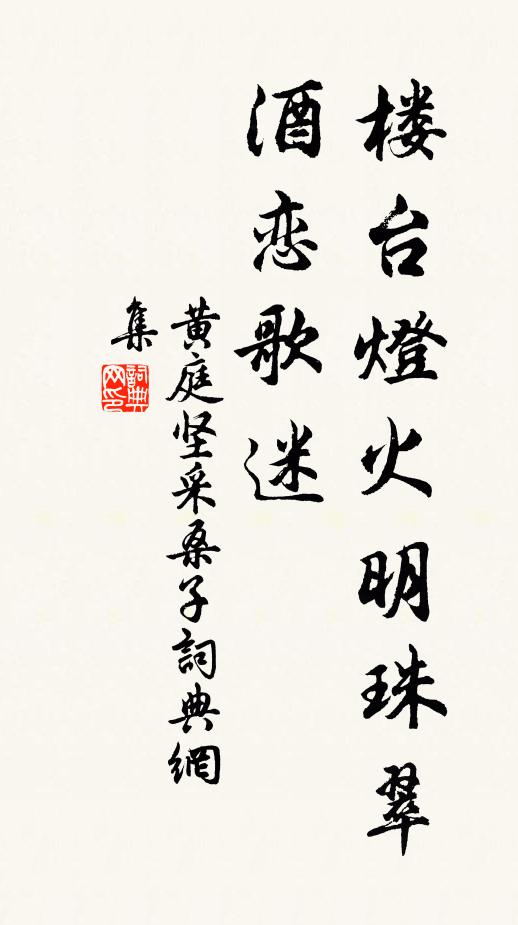 楼台燈火明珠翠
酒恋歌迷
黄庭坚采桑子詞典網
集
詞典
网印